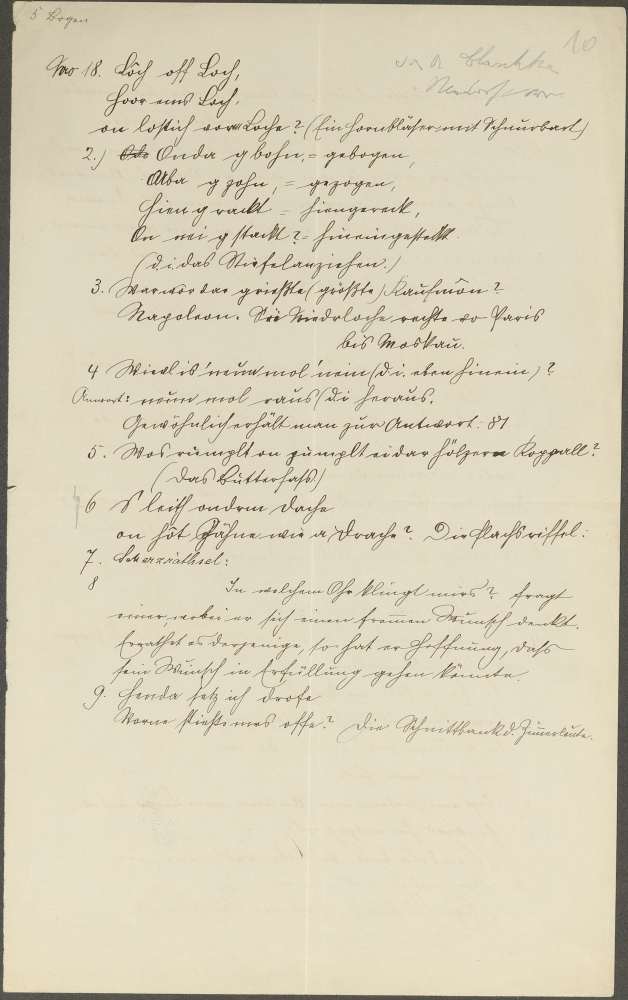 5 Bogen
10
No 18. Löch off Loch,
Hoor ems Loch,
on lostich vorm Loche? (Ein Hornbläser mit Schnurbart)
2.) Onda gbohn, = gebogen,
Oba gzohn, = gezogen,
hiengrackt = hiengereckt,
On nei gstackt? = hineingesteckt.
(d. i. das Stiefelanziehen.)
3. War wor dar grießte (größte) Kaufmôn?
Napoleon. Die Niederloche rechte vo Paris
bis Moskau.
4 Wievl is 'neun mol 'nein (d. i. eben hinein)?
Antwort: neun mol raus (d i heraus.
Gewöhnlich erhält man zur Antwort: 81
5. Wos rumplt on pumplt ei dar hölzern Koppall?
(Das Butterfaß)
6 S leith ondrm Dache
on hôt Zähne wie a Drache? Die Flachsriffel:
7. Scherzräthsel:
8 In welchem Ohr klingt mirs? fragt
einer, wobei er sich einen frommen Wunsch denkt.
Errathet es derjenige, so hat er Hoffnung, daß
sein Wunsch in Erfüllung gehen könnte.
9. Henda setz ich drofe
Vorne stießt mrs offe? Die Schnittbank d. Zimmerleute.